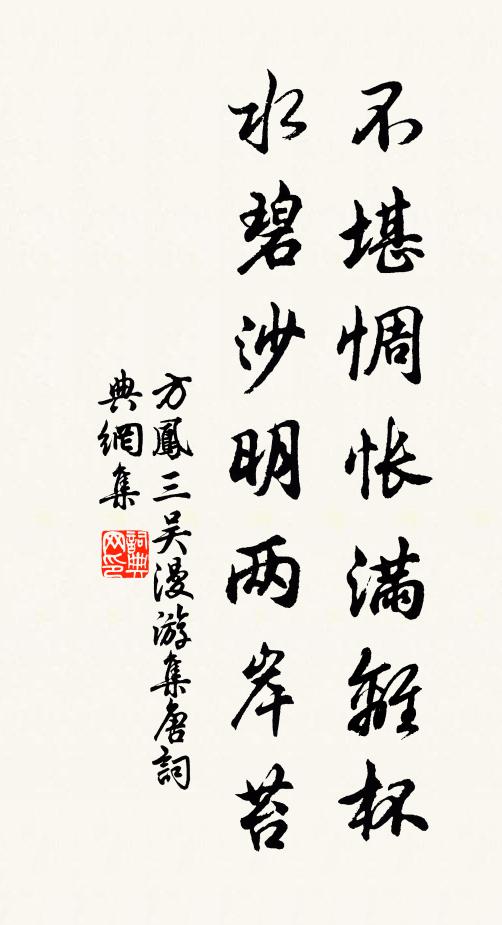 不堪惆怅满離杯
水碧沙明两岸苔
方鳳三吴漫游集唐詞
典網集
詞典网印